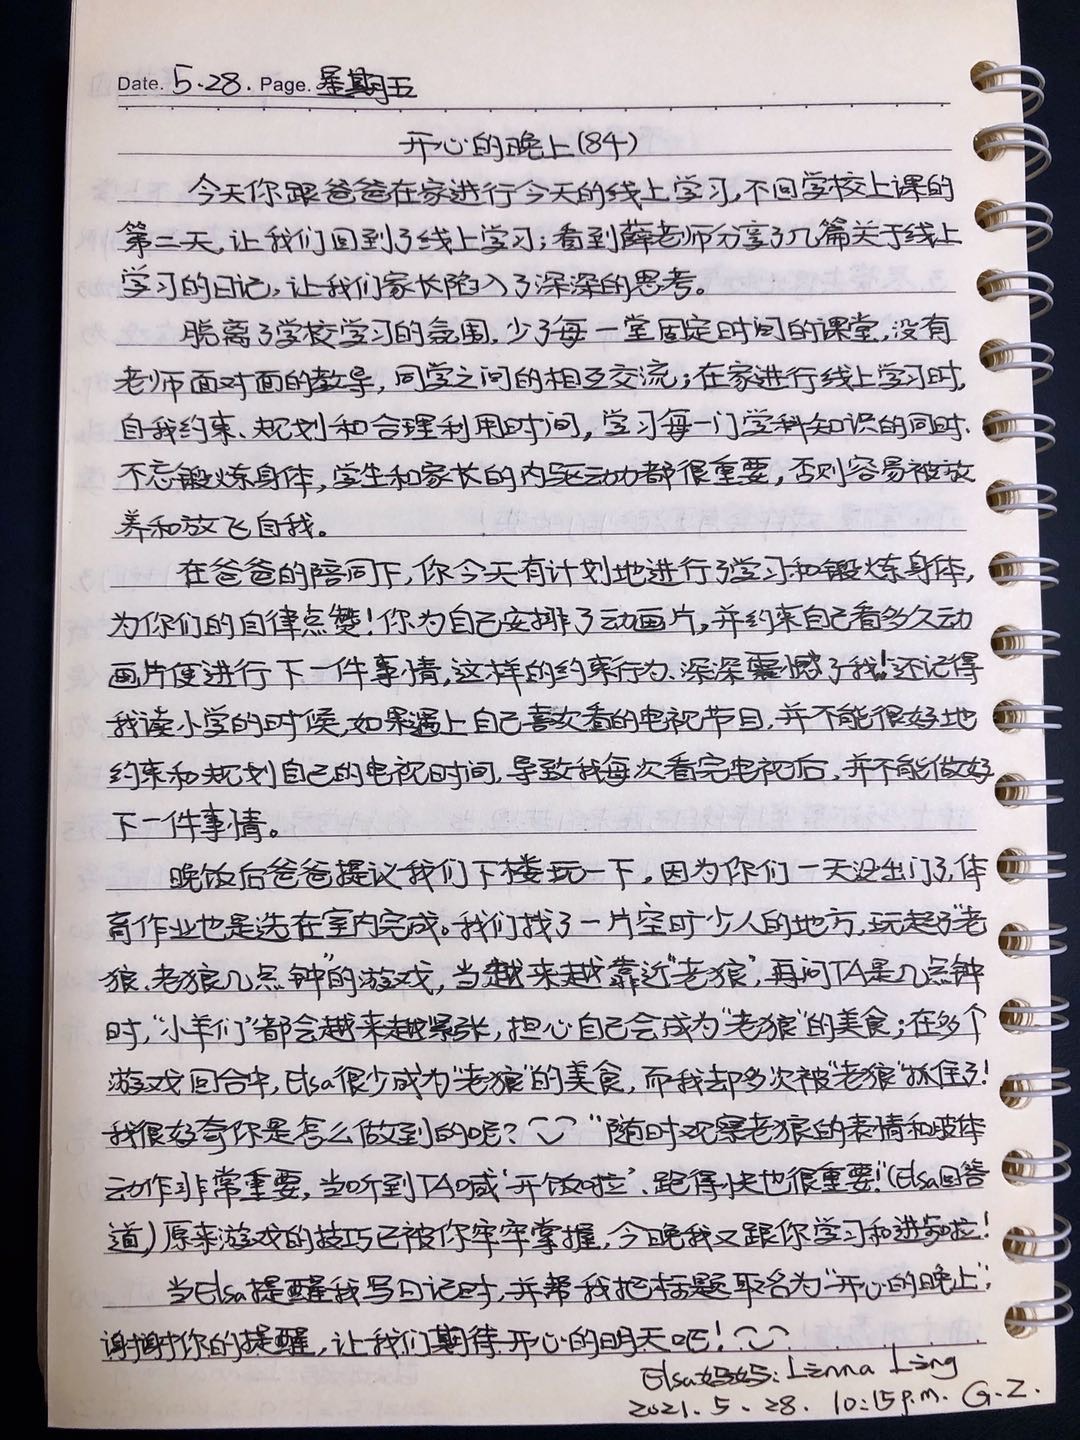 Date. 5.28. Page. 星期五
开心的晚上(84)
今天你跟爸爸在家进行今天的线上学习,不回学校上课的
第二天,让我们回到了线上学习;看到薛老师分享了几篇关于线上
学习的日记,让我们家长陷入了深深的思考。
脱离了学校学习的氛围,少了每一堂固定时间的课堂,没有
老师面对面的教导,同学之间的相互交流;在家进行线上学习时,
自我约束、规划和合理利用时间,学习每一门学科知识的同时、
不忘锻炼身体,学生和家长的内驱动力都很重要,否则容易被放
养和放飞自我。
在爸爸的陪同下,你今天有计划地进行了学习和锻炼身体,
为你们的自律点赞!你为自己安排了动画片,并约束自己看多久动
画片便进行下一件事情,这样的约束行为、深深震憾了我!还记得
我读小学的时候,如果遇上自己喜欢看的电视节目,并不能很好地
约束和规划自己的电视时间,导致我每次看完电视后,并不能做好
下一件事情。
晚饭后爸爸提议我们下楼玩一下,因为你们一天没出门了,体
育作业也是选在室内完成。我们找了一片空旷少人的地方,玩起了“老
狼、老狼几点钟”的游戏,当越来越靠近“老狼”,再问TA是几点钟
时,“小羊们”都会越来越紧张,担心自己会成为“老狼”的美食;在多个
游戏回合中,Elsa很少成为“老狼”的美食,而我却多次被“老狼”抓住了!
我很好奇你是怎么做到的呢?“随时观察老狼的表情和肢体
动作非常重要,当听到TA喊‘开饭啦’、跑得快也很重要!”(Elsa回答
道)原来游戏的技巧已被你牢牢掌握,今晚我又跟你学习和进步啦!
当Elsa提醒我写日记时,并帮我把标题取名为“开心的晚上”,
谢谢你的提醒,让我们期待开心的明天吧!
Elsa妈妈:Linna Ling
2021.5.28. 10:15p.m. G.Z.